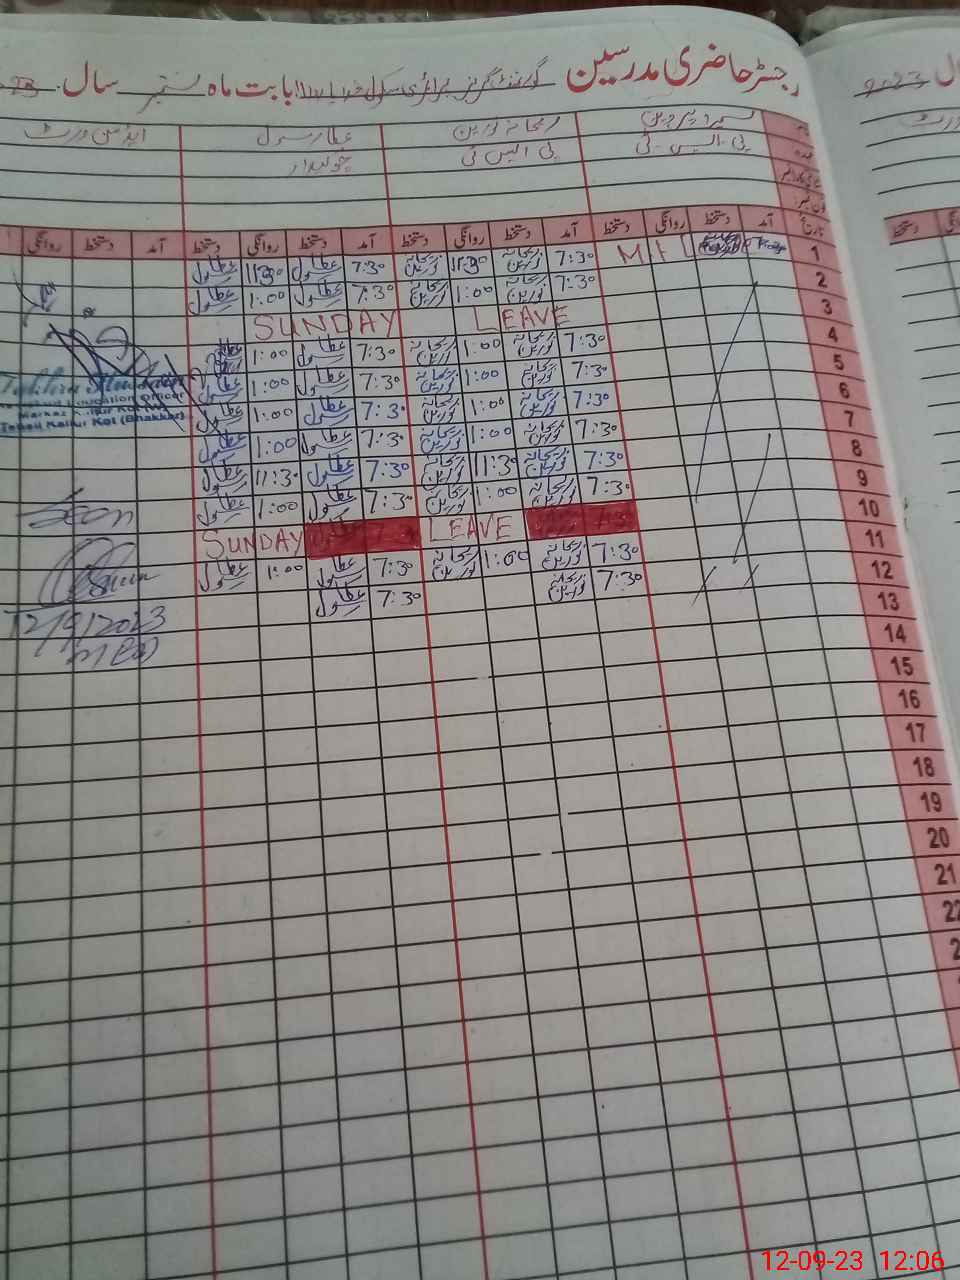 رجسٹر حاضری مدرسین گورنمنٹ گرلز پرائمری سکول بابت ماہ ستمبر سال 23
ریحانہ نورین عطا رسول
پی ایس ٹی پی ایس ٹی چوکیدار
تاریخ آمد دستخط روانگی دستخط آمد دستخط روانگی دستخط آمد دستخط روانگی
1 7:30 ریحانہ نورین 11:30 ریحانہ نورین 7:30 عطا رسول 11:30 عطا رسول
2 7:30 ریحانہ نورین 1:00 ریحانہ نورین 7:30 عطا رسول 1:00 عطا رسول
3 SUNDAY LEAVE
4 7:30 ریحانہ نورین 1:00 ریحانہ نورین 7:30 عطا رسول 1:00 عطا رسول
5 7:30 ریحانہ نورین 1:00 ریحانہ نورین 7:30 عطا رسول 1:00 عطا رسول
6 7:30 ریحانہ نورین 1:00 ریحانہ نورین 7:30 عطا رسول 1:00 عطا رسول
7 7:30 ریحانہ نورین 1:00 ریحانہ نورین 7:30 عطا رسول 1:00 عطا رسول
8 7:30 ریحانہ نورین 11:30 ریحانہ نورین 7:30 عطا رسول 11:30 عطا رسول
9 7:30 ریحانہ نورین 1:00 ریحانہ نورین 7:30 عطا رسول 1:00 عطا رسول
10 SUNDAY LEAVE
11 7:30 ریحانہ نورین 1:00 ریحانہ نورین 7:30 عطا رسول 1:00 عطا رسول
12 7:30 ریحانہ نورین 7:30 عطا رسول
13
14
15
16
17
18
19
20
21
22
Education Officer
Markaz Kallur Kot
Tehsil Kallur Kot (Bhakkar)
12/9/2023
9.23
دستخط
12-09-23 12:06